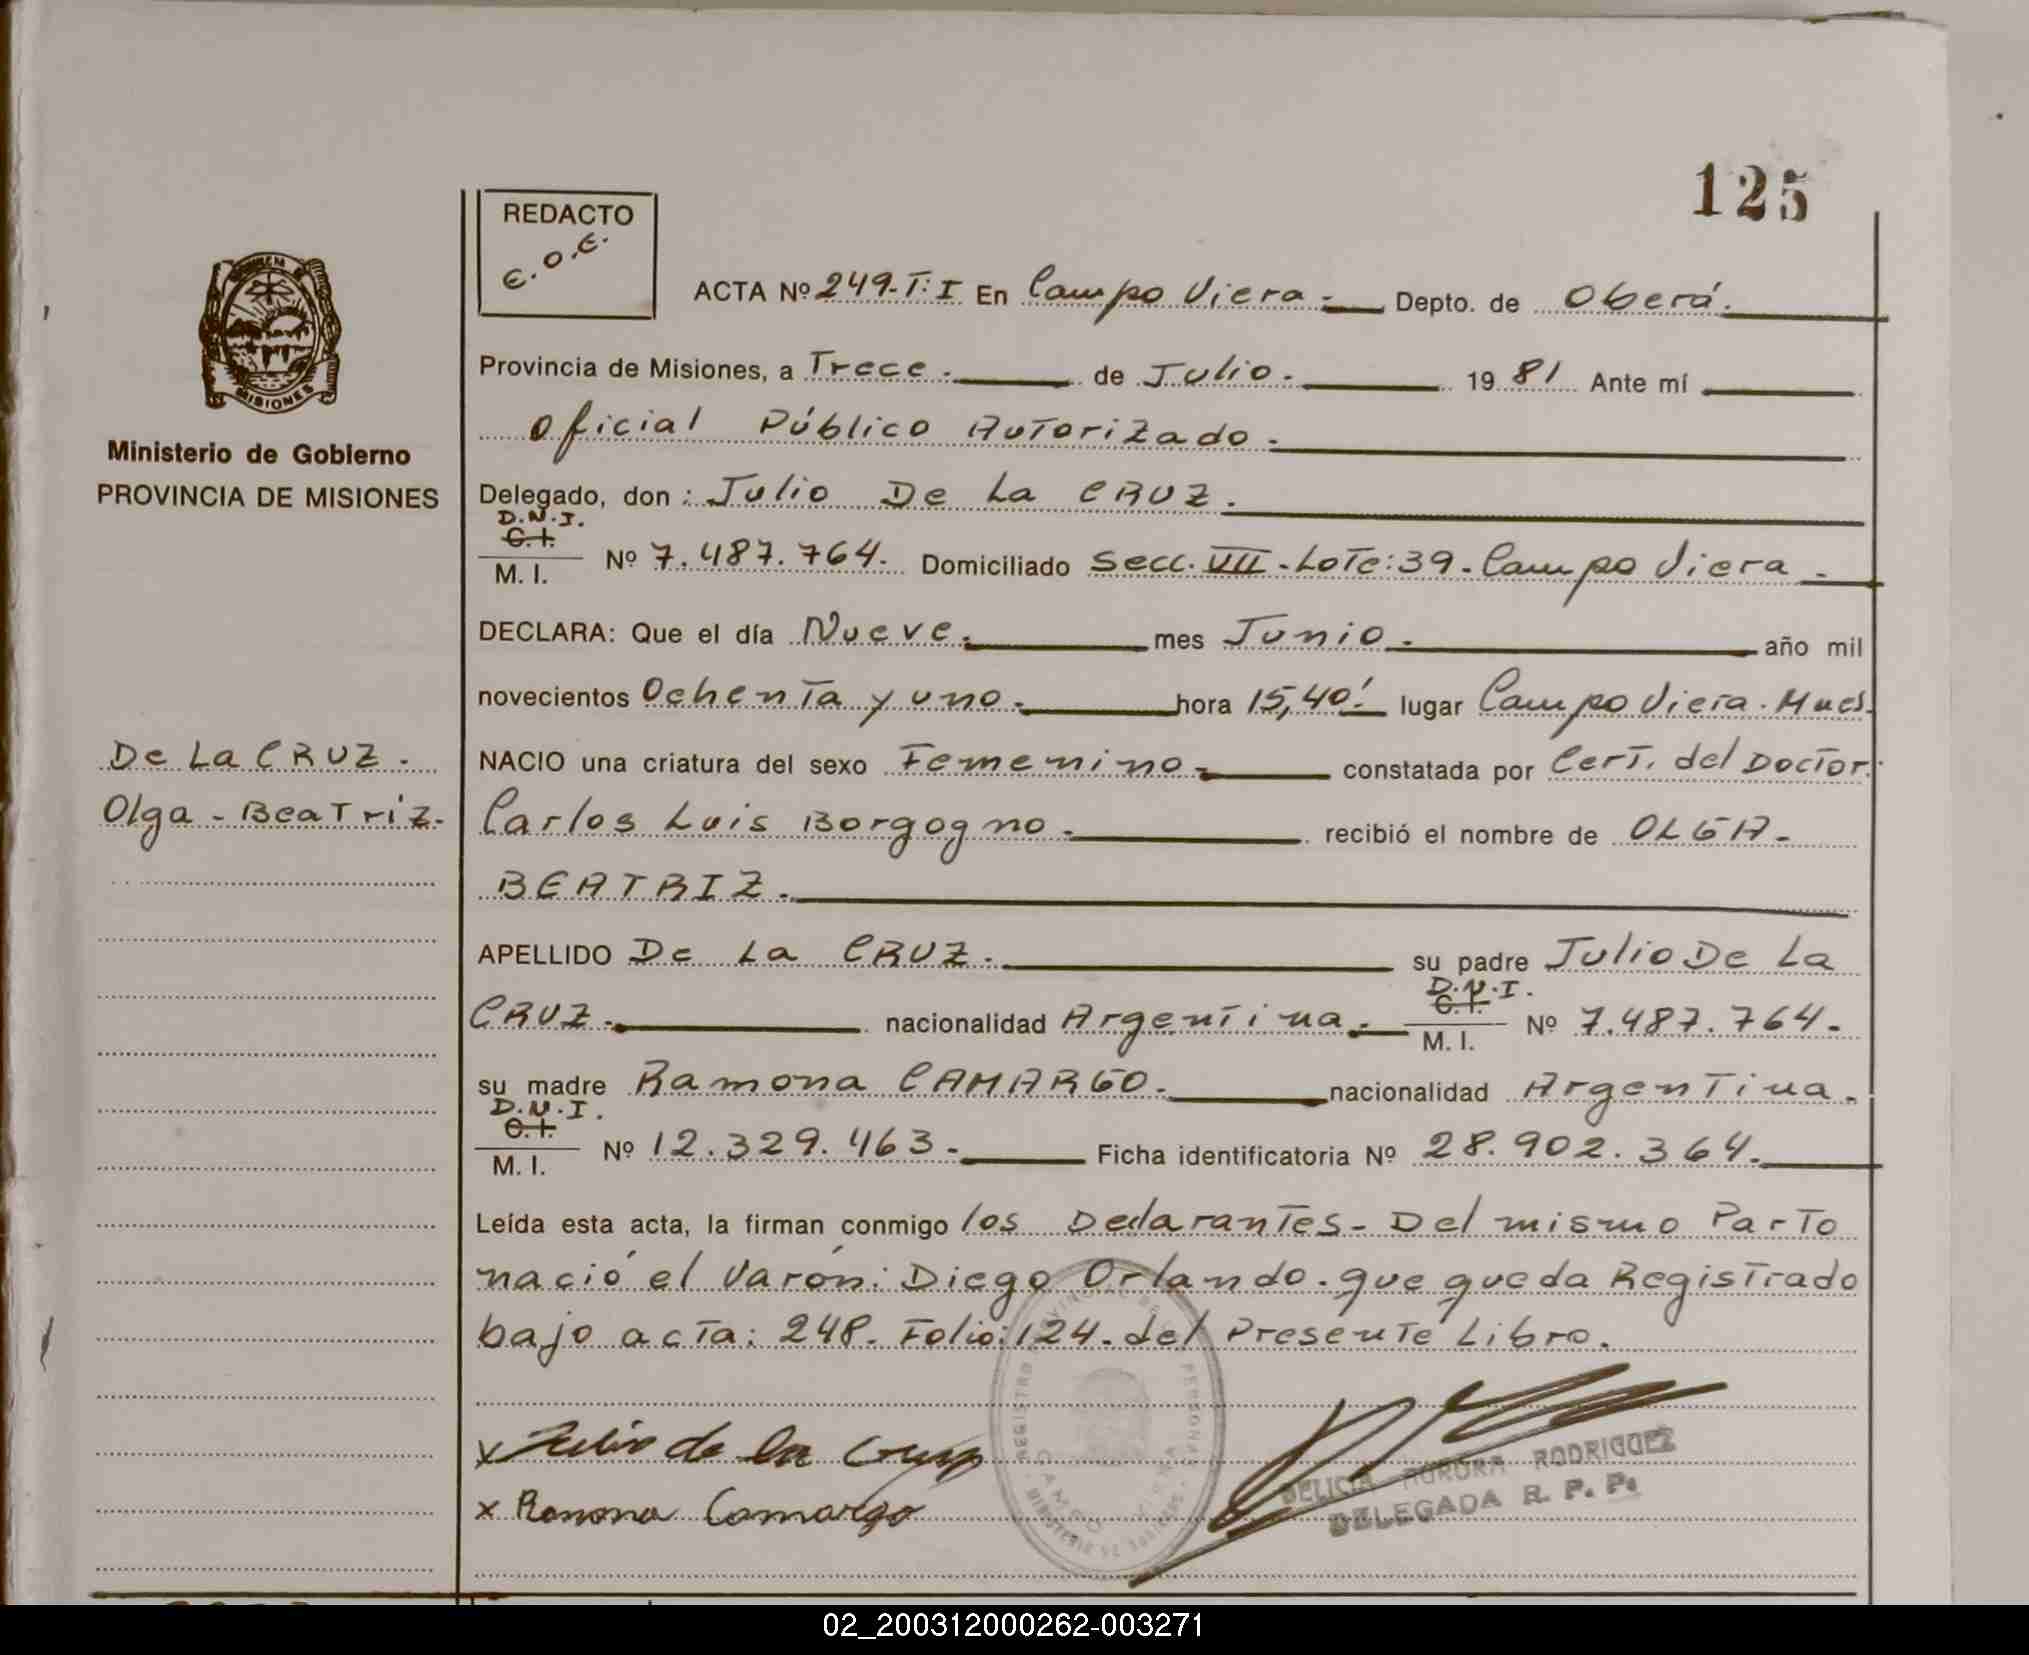 125
REDACTO
E.O.E.
ACTA Nº 249-T:I En Campo Viera - Depto. de Oberá.
Provincia de Misiones, a Trece. de Julio. 19 81 Ante mí
Oficial Público Autorizado.
Ministerio de Gobierno
PROVINCIA DE MISIONES
MISIONES
Delegado, don: Julio De La CRUZ.
D.N.I.
C.I.
M. I. Nº 7.487.764. Domiciliado Secc. VII - Lote: 39 - Campo Viera -
DECLARA: Que el día Nueve. mes Junio. año mil
novecientos Ochenta y uno. hora 15,40' lugar Campo Viera. Mnes.
De La CRUZ.
Olga - Beatriz.
NACIO una criatura del sexo Femenino - constatada por Cert. del Doctor.
Carlos Luis Borgogno. recibió el nombre de OLGA -
BEATRIZ.
APELLIDO De La CRUZ. su padre Julio De La
CRUZ. nacionalidad Argentina. D.N.I. C.I. M. I. Nº 7.487.764.
su madre Ramona CAMARGO. nacionalidad Argentina.
D.N.I.
C.I.
M. I. Nº 12.329.463. Ficha identificatoria Nº 28.902.364.
Leída esta acta, la firman conmigo los Declarantes - Del mismo Parto
nació el Varón: Diego Orlando. que queda Registrado
bajo acta: 248. Folio: 124. del Presente Libro.
x Julio de la Cruz
x Ramona Camargo
DELICIA AURORA RODRIGUEZ
DELEGADA R. P. P.
02_200312000262-003271